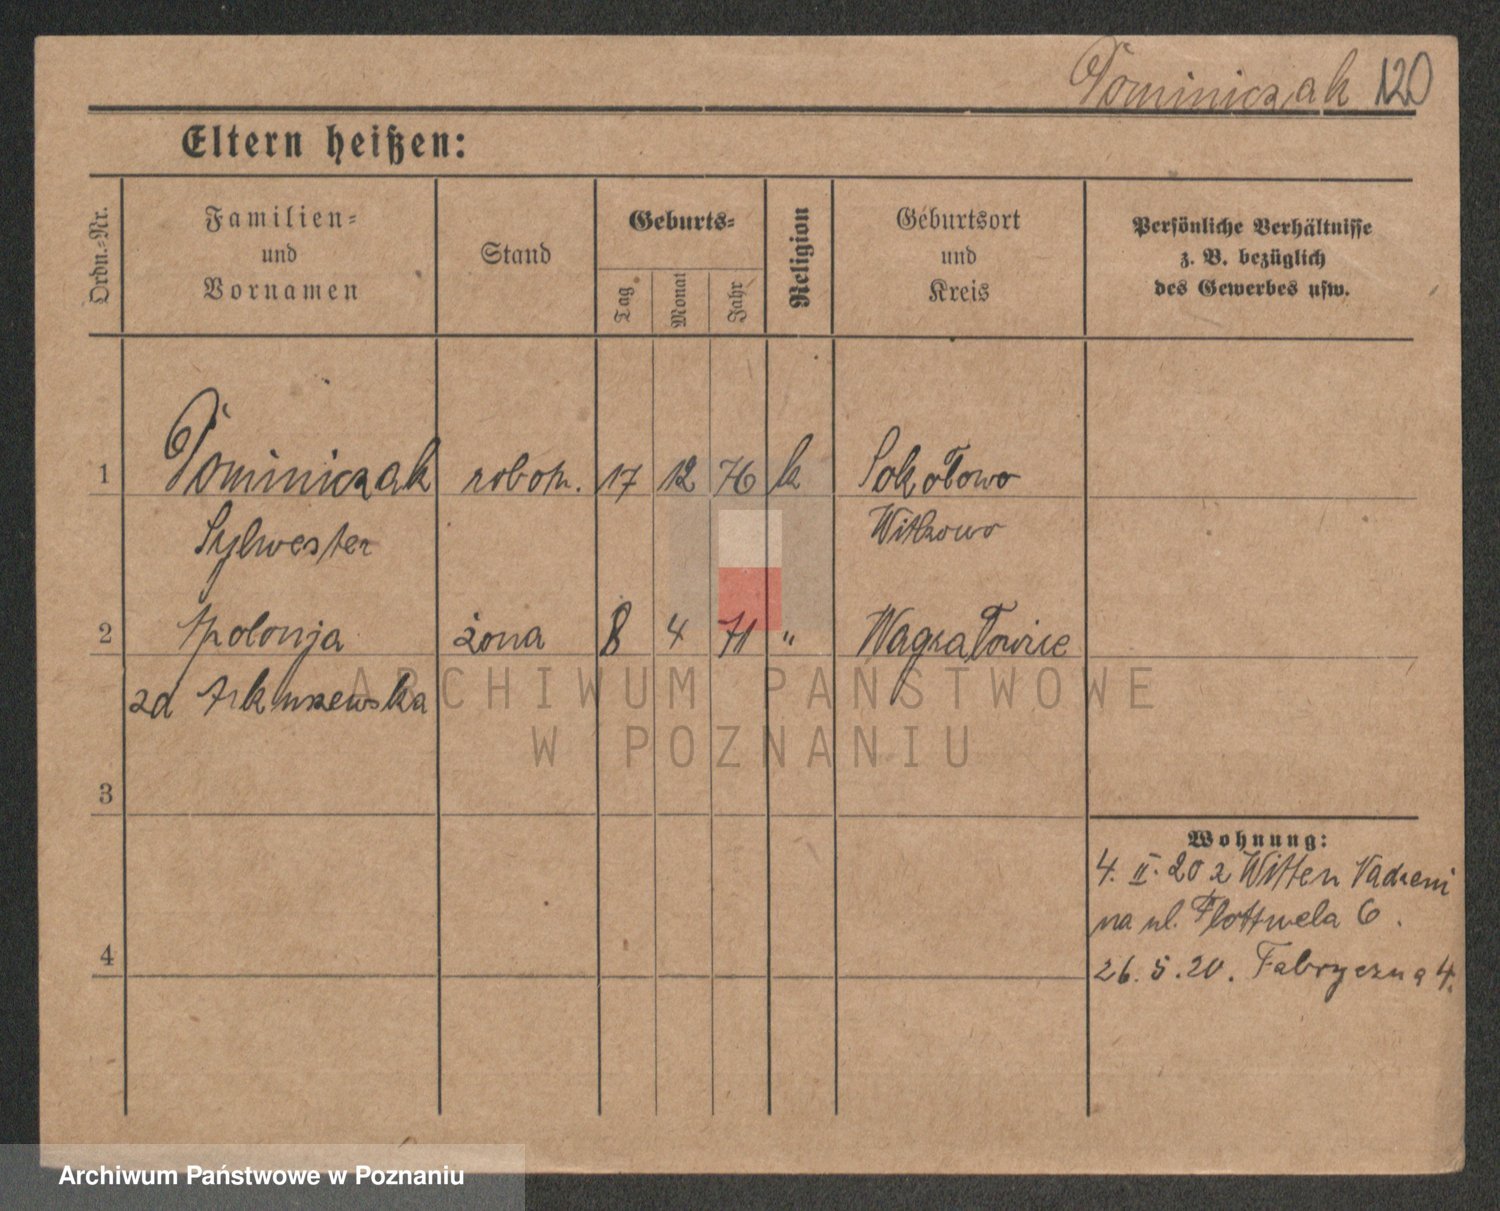 Dominiczak 120
Eltern heißen:
Ordn.-Nr.
Familien-
und
Vornamen
Stand
Geburts-
Tag
Monat
Jahr
Religion
Geburtsort
und
Kreis
Persönliche Verhältnisse
z. B. bezüglich
des Gewerbes usw.
1 Dominiczak robotn. 17 12 76 k Sokołowo
Sylwester Witkowo
2 Apolonja żona 8 4 71 "
zd Arkuszewska
ARCHIWUM PAŃSTWOWE
W POZNANIU
3
Wohnung:
4. II. 20 z Witten
na ul. Flottwela 6.
4
26. 5. 20. Fabryczna 4.
Archiwum Państwowe w Poznaniu